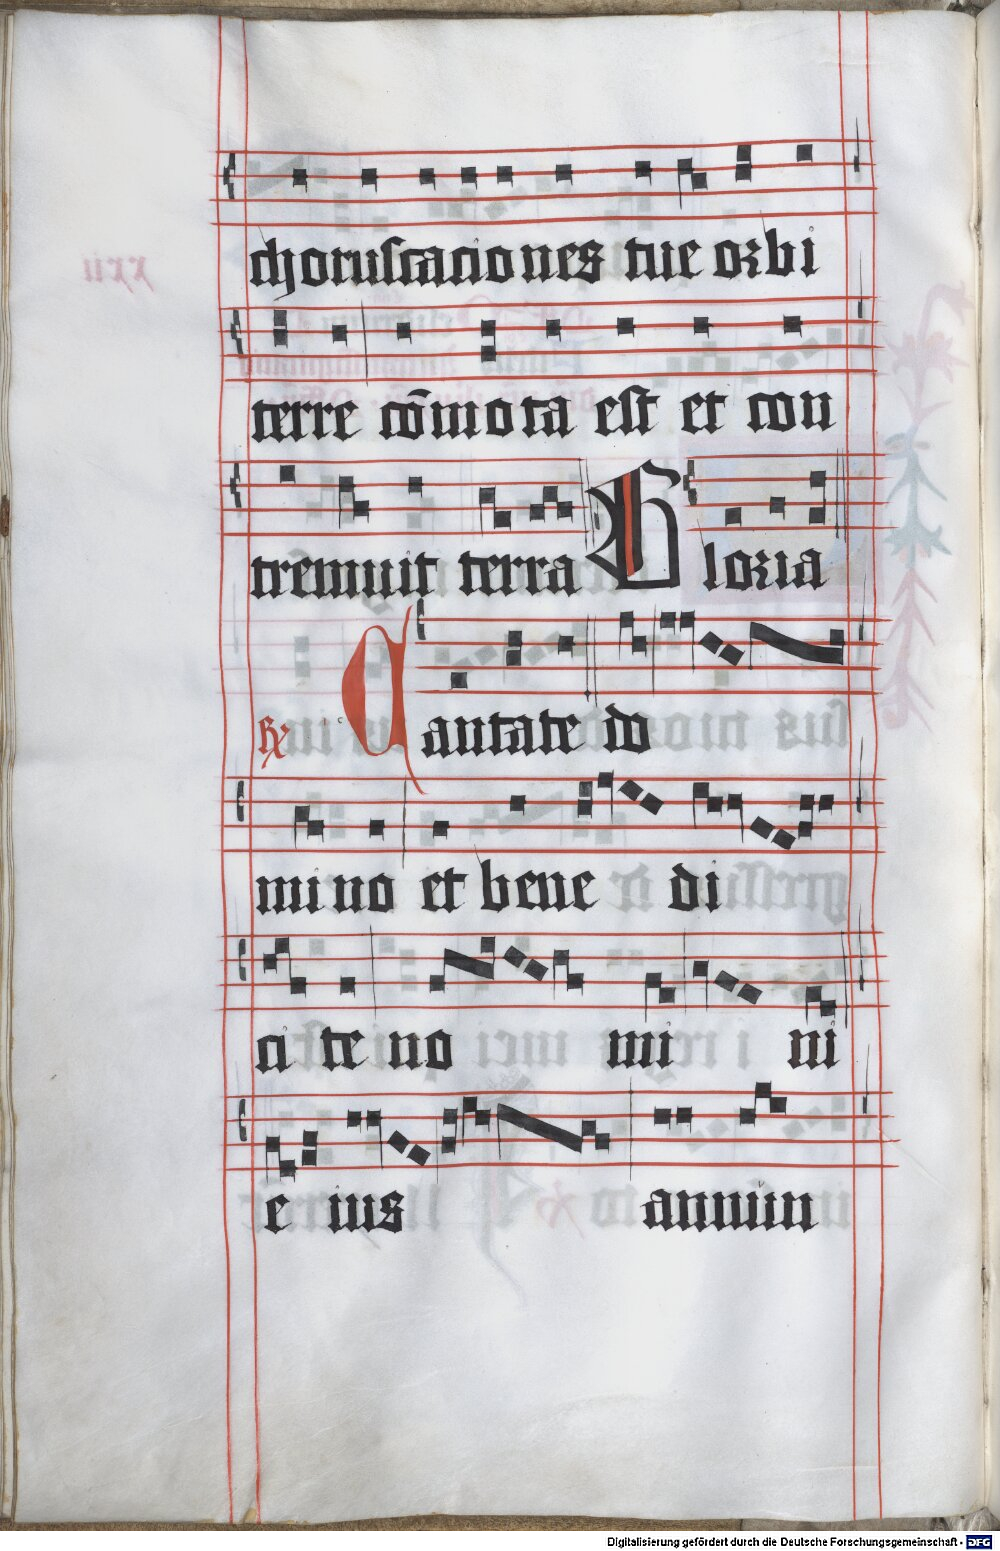 choruscaciones tue orbi
terre cōmota est et con
tremuit terra Gloria
R̃ Cantate do
mino et bene di
cite no mi ni
e ius annun
Digitalisierung gefördert durch die Deutsche Forschungsgemeinschaft - DFG